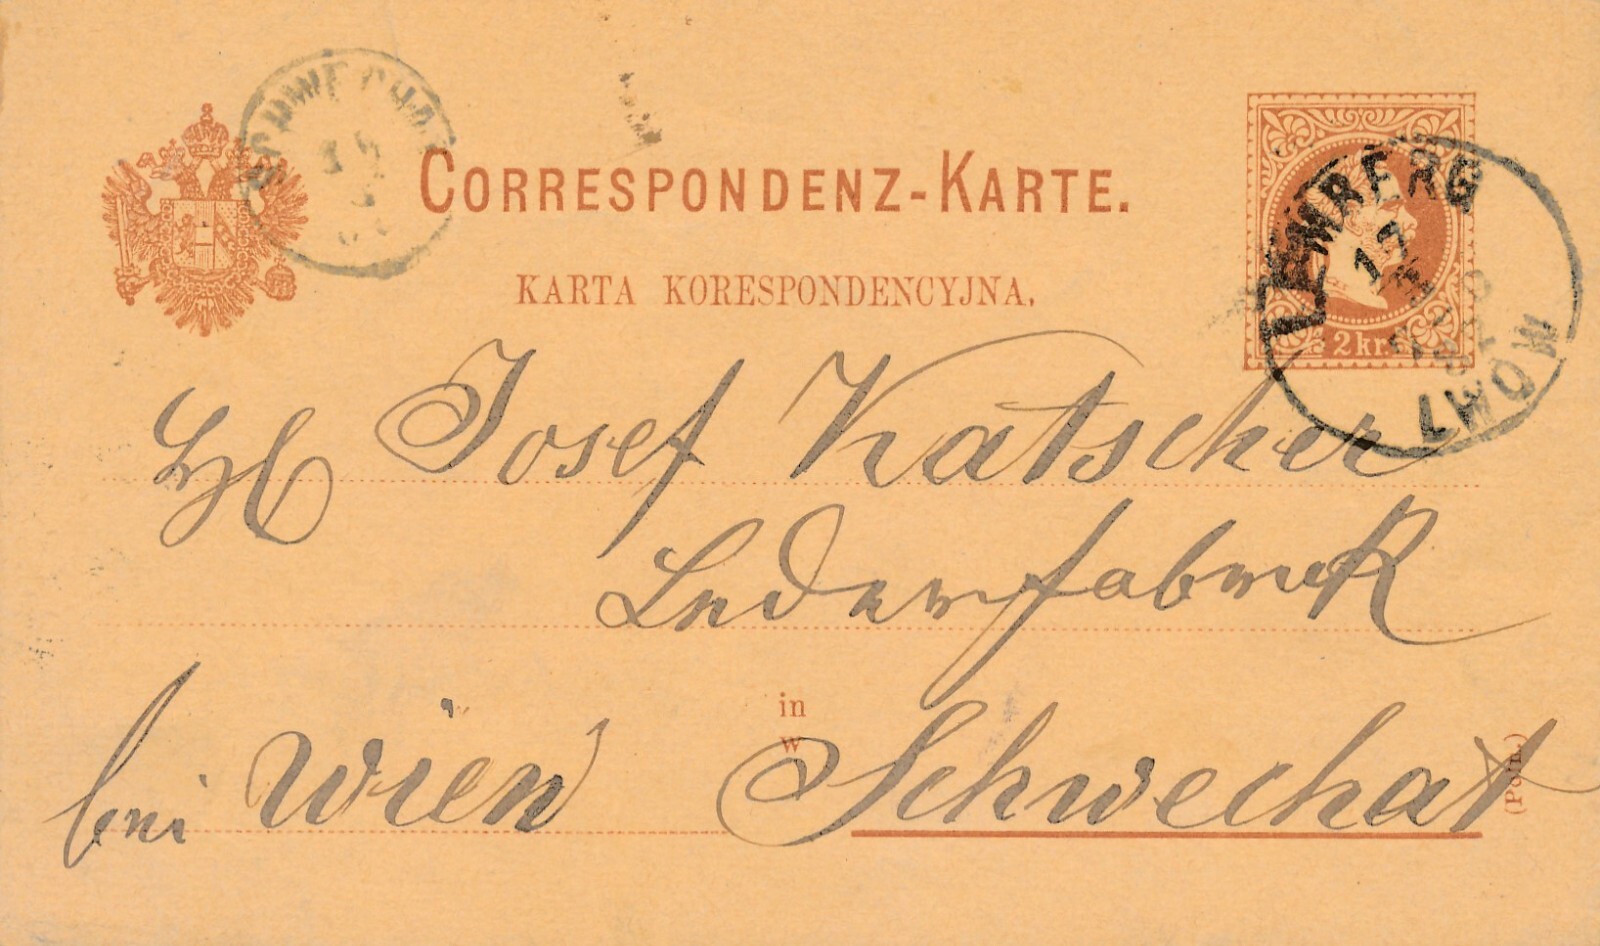 CORRESPONDENZ-KARTE.
KARTA KORESPONDENCYJNA.
SCHWECHAT
2 kr.
LEMBERG
17
LWÓW
Josef Katscher
Lederfabrik
in
w
bei Wien Schwechat
(Poln.)